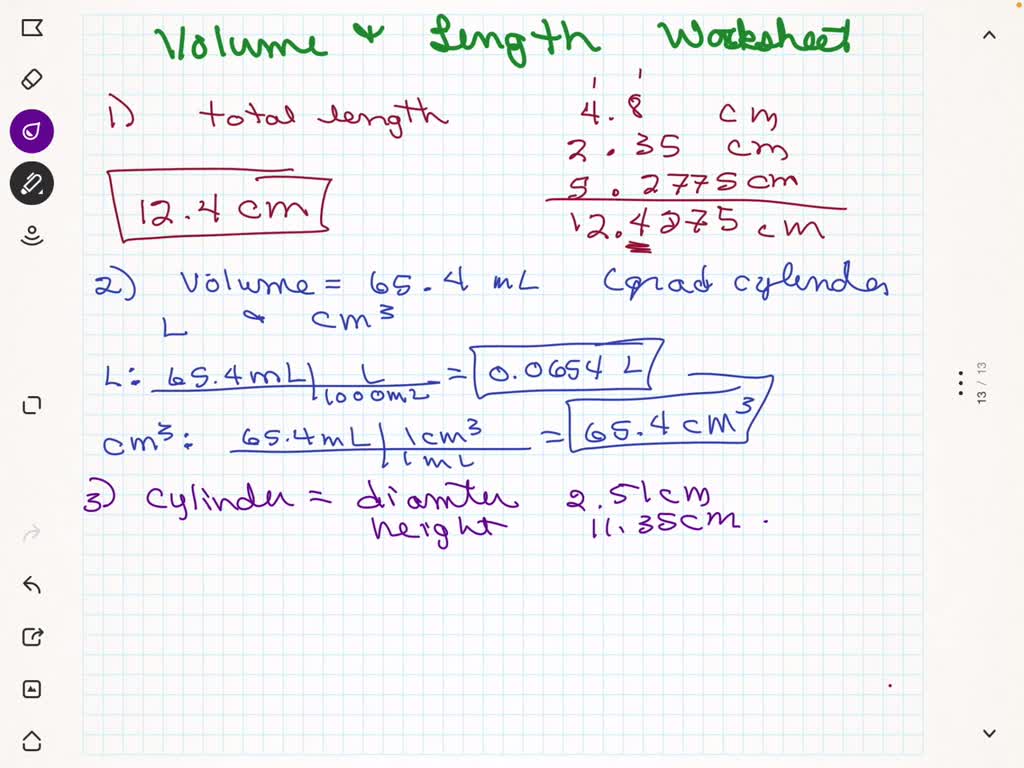 Volume & Length Worksheet
1) total length
1 1
4.8 cm
2.35 cm
5.2775 cm
12.4275 cm
12.4 cm
2) Volume = 65.4 mL (grad cylinder
L & cm³
L: 65.4 mL | L = 0.0654 L
1000 mL
cm³: 65.4 mL | 1 cm³ = 65.4 cm³
1 mL
3) cylinder = diamter 2.51 cm
height 11.35 cm.
13 / 13